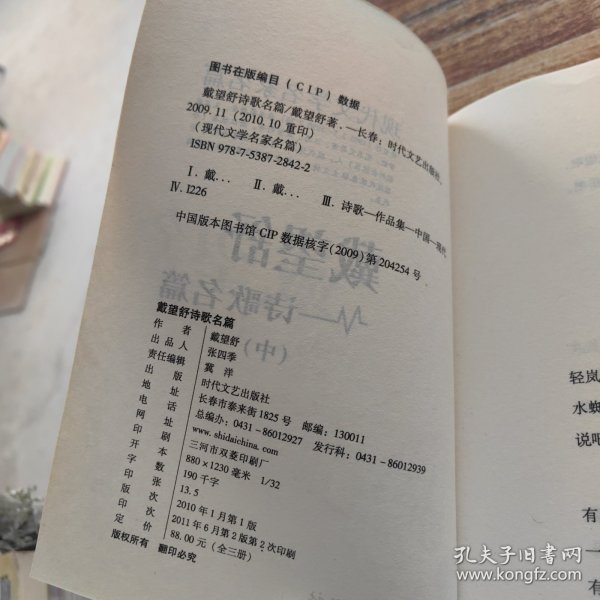 图书在版编目（CIP）数据
戴望舒诗歌名篇/戴望舒著．—长春：时代文艺出版社，
2009.11（2010.10重印）
（现代文学名家名篇）
ISBN 978-7-5387-2842-2
Ⅰ．戴… Ⅱ．戴… Ⅲ．诗歌—作品集—中国—现代
Ⅳ．I226
中国版本图书馆CIP数据核字（2009）第204254号
戴望舒
诗歌名篇
（中）
戴望舒诗歌名篇
作者 戴望舒
出品人 张四季
责任编辑 冀洋
出版 时代文艺出版社
地址 长春市泰来街1825号 邮编：130011
电话 总编办：0431-86012927 发行科：0431-86012939
网址 www.shidaichina.com
印刷 三河市双菱印刷厂
开本 880×1230毫米 1/32
字数 190千字
印张 13.5
版次 2010年1月第1版
印次 2011年6月第2版第2次印刷
定价 88.00元（全三册）
版权所有 翻印必究
轻岚
水蜘
说吧
有
有
孔夫子旧书网
www.kongfz.com